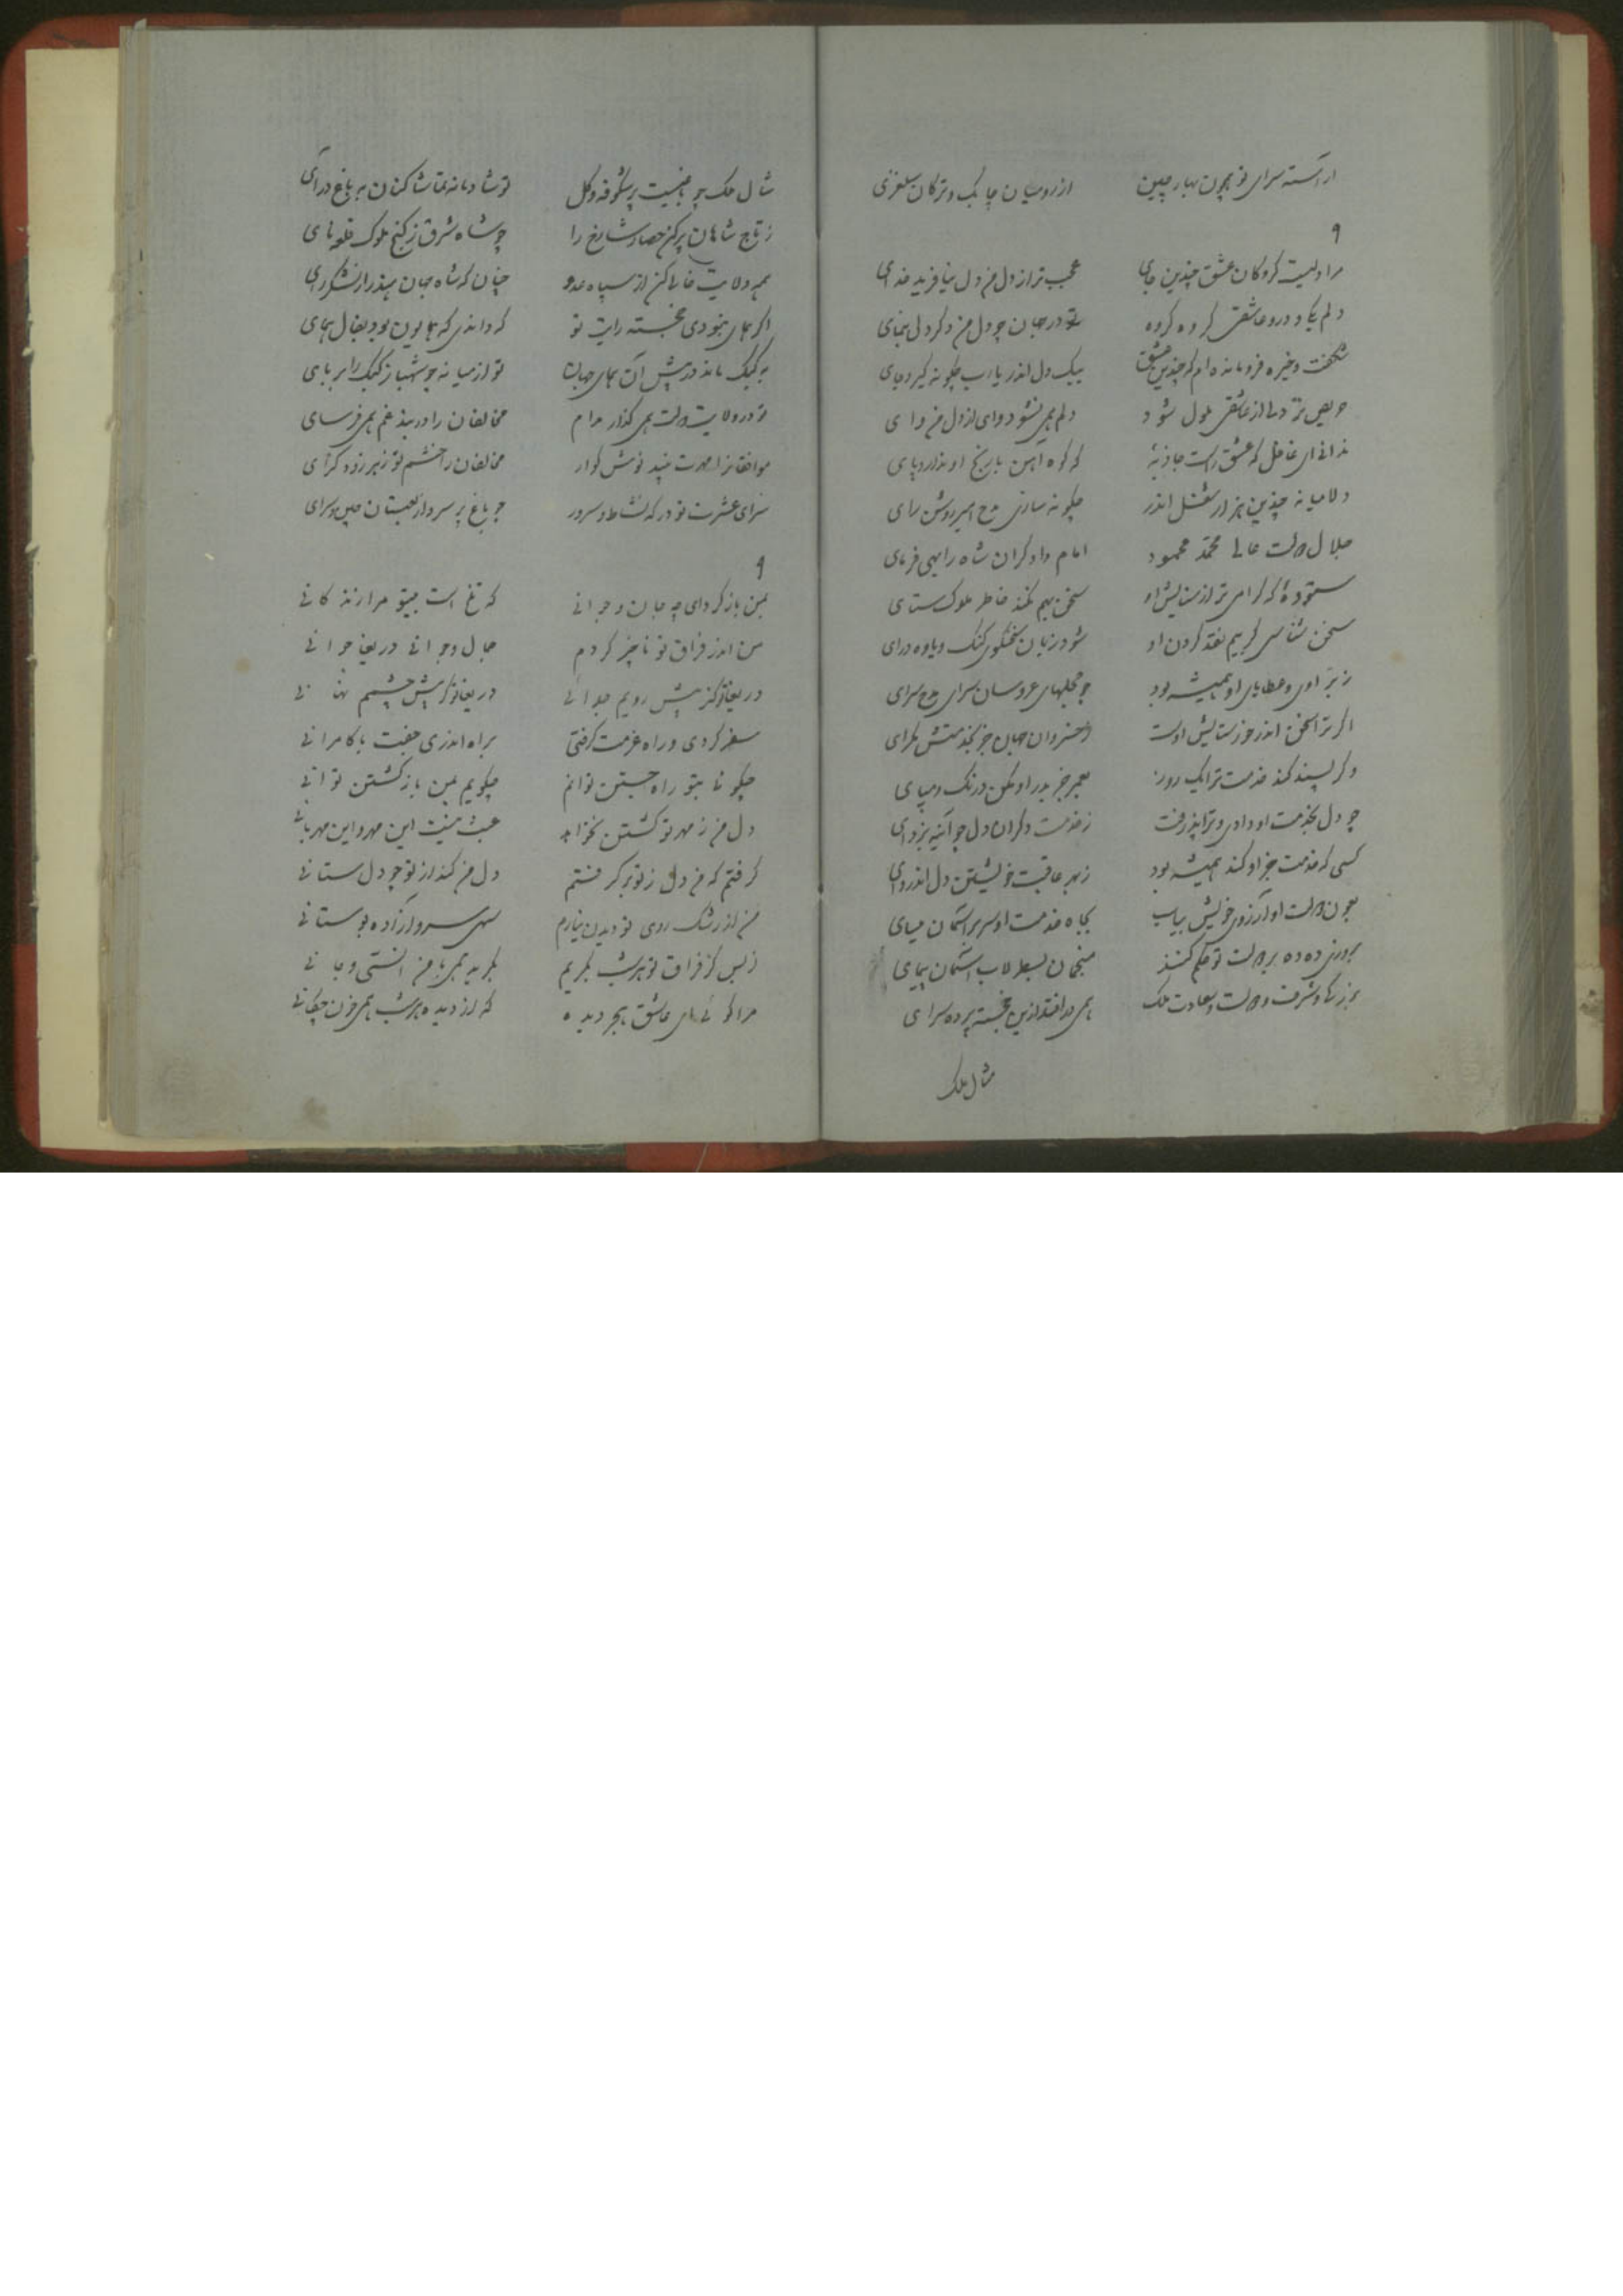 آراسته سرای تو همچون بهار چین از رومیان چابک و ترکان سعتری
و
مرا دلیست گروگان عشق چندین جای عجب تر از دل من دل نیافریده خدای
دلم یکی و درو عاشقی گروه گروه تو در جهان چو دل من دگر دلی بنمای
شگفت و خیره فرومانده ام که چندین عشق بیک دل اندر یارب چگونه گیرد جای
حریص تر دلی از عاشقی ملول شود دلم همی نشود وای از دل من وای
ندانی ای عاقل که عشق را ست جاذبه که کوه آهن با رنج او ندارد پای
دلا میانه چندین هزار شغل اندر چگونه سازی مدح امیر روشن رای
جلال دولت عالی محمد محمود امام دادگران شاه راهی فرمای
ستوده که گرامی تر از ستایش او سخن بهم نکند خاطر ملوک ستای
سخن شناسی کز بیم نقد کردن او شود زبان سخنگوی گنگ و یاوه درای
ز بر او و عطاهای او همیشه بود چو حجلهای عروسان سرای مدح سرای
اگر ترا سخن اندر خور ستایش اوست ز خسروان جهان جز بخدمتش مگرای
وگر پسند کند خدمت ترا یک روز بعمر جز بدر او مکن درنگ و مپای
چو دل بخدمت او دادی و ترا پذرفت ز خدمت دگران دل چو آینه بزدای
کسی که خدمت جز او کند همیشه بود زبهر عاقبت خویشتن دل اندروای
بعون دولت او آرزوی خویش بیاب بجاه خدمت او سر بر آسمان میسای
بروزی ده ده بر دولت تو حکم کنند منجمان بسطرلاب آسمان پیمای
بزرگی و شرف و دولت و سعادت ملک همی در افتد ازین خجسته پرده سرای
مثال ملک
مثال ملک چو باغیست پر شکوفه و گل تو شادمانه تماشا کنان به باغ درآی
ز تاج شاهان پر کن حصار شادخ را چو شاه شرق ز گنج ملوک قلعه نای
همه ولایت خالی کن از سپاه عدو چنان که شاه جهان هند را ز لشکر رای
اگر همای نبودی خجسته رایت تو که داندی که همایون بود بفال همای
به کبک ماند در پیش آن همای جهان تو از میانه چو شهباز کبک را بربای
تو در ولایت و دولت همی گذار مدام مخالفان را در بند غم همی فرسای
موافقانرا مهرت نبید نوش گوار مخالفان را خشم تو زهر زود گزای
سرای عشرت تو درگه نشاط و سرور چو باغ پر سرو از لعبتان چین و سرای
و
بمن بازگرد ای چو جان و جوانی که تلخ است بیتو مرا زندگانی
من اندر فراق تو ناچیز کردم جمال و جوانی دریغا جوانی
دریغا تو کز پیش رویم جدائی دریغا تو کز پیش چشمم نهانی
سفر کردی و راه غربت گرفتی براه اندری جفت با کامرانی
چگونه بتو راه جستن توانم چگویم بمن بازگشتن توانی
دل من ز مهر تو گشتن نخواهد عجب نیست این مهر و این مهربانی
گرفتم که من دل ز تو برگرفتم دل من کند از تو چو دل ستانی
من از رشک روی تو دیدن نیارم سهی سرو آزاده بوستانی
ز بس کز فراق تو هر شب بگریم بگرید همی با من انسی و جانی
مرا گوئی ای عاشق هجر دیده که از دیده هر شب همی خون چکانی